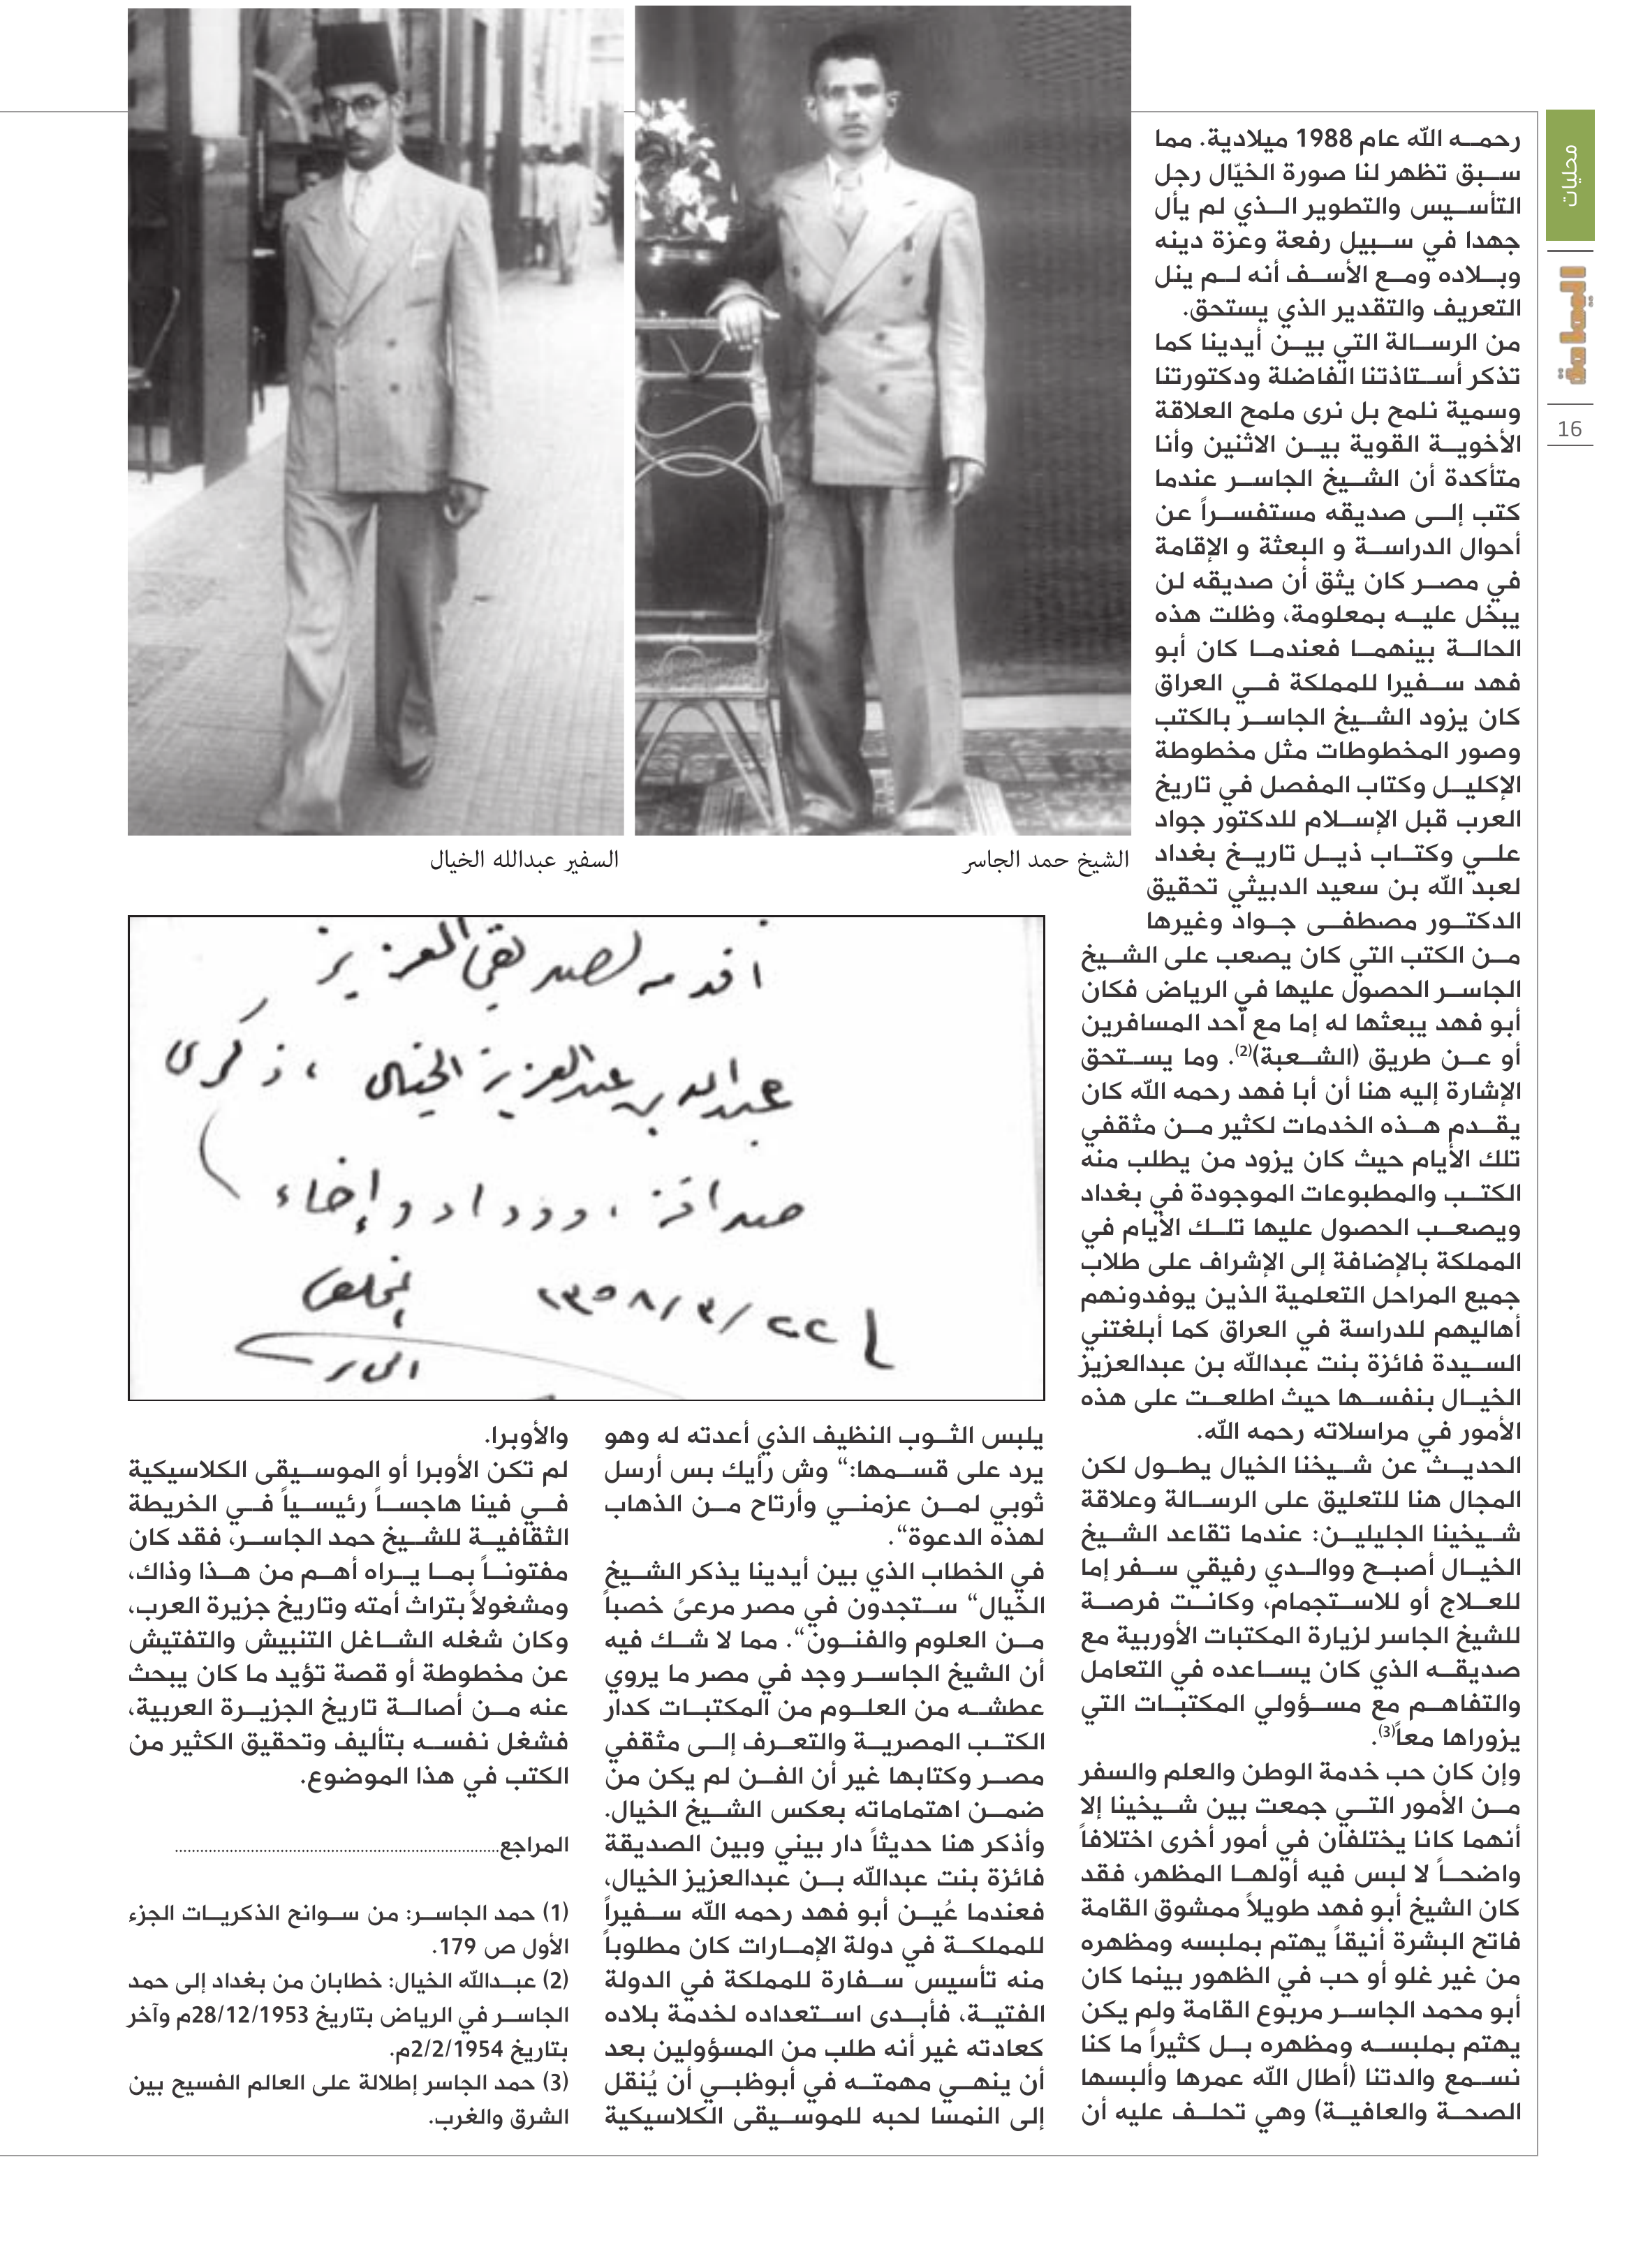 محليات
اليمامة
16
رحمه الله عام 1988 ميلادية. مما
سبق تظهر لنا صورة الخيّال رجل
التأسيس والتطوير الذي لم يأل
جهدا في سبيل رفعة وعزة دينه
وبلاده ومع الأسف أنه لم ينل
التعريف والتقدير الذي يستحق.
من الرسالة التي بين أيدينا كما
تذكر أستاذتنا الفاضلة ودكتورتنا
وسمية نلمح بل نرى ملمح العلاقة
الأخوية القوية بين الاثنين وأنا
متأكدة أن الشيخ الجاسر عندما
كتب إلى صديقه مستفسراً عن
أحوال الدراسة و البعثة و الإقامة
في مصر كان يثق أن صديقه لن
يبخل عليه بمعلومة، وظلت هذه
الحالة بينهما فعندما كان أبو
فهد سفيرا للمملكة في العراق
كان يزود الشيخ الجاسر بالكتب
وصور المخطوطات مثل مخطوطة
الإكليل وكتاب المفصل في تاريخ
العرب قبل الإسلام للدكتور جواد
علي وكتاب ذيل تاريخ بغداد
لعبد الله بن سعيد الدبيثي تحقيق
الدكتور مصطفى جواد وغيرها
من الكتب التي كان يصعب على الشيخ
الجاسر الحصول عليها في الرياض فكان
أبو فهد يبعثها له إما مع أحد المسافرين
أو عن طريق (الشعبة)(2). وما يستحق
الإشارة إليه هنا أن أبا فهد رحمه الله كان
يقدم هذه الخدمات لكثير من مثقفي
تلك الأيام حيث كان يزود من يطلب منه
الكتب والمطبوعات الموجودة في بغداد
ويصعب الحصول عليها تلك الأيام في
المملكة بالإضافة إلى الإشراف على طلاب
جميع المراحل التعلمية الذين يوفدونهم
أهاليهم للدراسة في العراق كما أبلغتني
السيدة فائزة بنت عبدالله بن عبدالعزيز
الخيال بنفسها حيث اطلعت على هذه
الأمور في مراسلاته رحمه الله.
الحديث عن شيخنا الخيال يطول لكن
المجال هنا للتعليق على الرسالة وعلاقة
شيخينا الجليلين: عندما تقاعد الشيخ
الخيال أصبح ووالدي رفيقي سفر إما
للعلاج أو للاستجمام، وكانت فرصة
للشيخ الجاسر لزيارة المكتبات الأوربية مع
صديقه الذي كان يساعده في التعامل
والتفاهم مع مسؤولي المكتبات التي
يزوراها معاً(3).
وإن كان حب خدمة الوطن والعلم والسفر
من الأمور التي جمعت بين شيخينا إلا
أنهما كانا يختلفان في أمور أخرى اختلافاً
واضحاً لا لبس فيه أولها المظهر، فقد
كان الشيخ أبو فهد طويلاً ممشوق القامة
فاتح البشرة أنيقاً يهتم بملبسه ومظهره
من غير غلو أو حب في الظهور بينما كان
أبو محمد الجاسر مربوع القامة ولم يكن
يهتم بملبسه ومظهره بل كثيراً ما كنا
نسمع والدتنا (أطال الله عمرها وألبسها
الصحة والعافية) وهي تحلف عليه أن
الشيخ حمد الجاسر
السفير عبدالله الخيال
اقدمه لصديقي العزيز
عبدالله بن عبدالعزيز الخيال ، ذكرى
صداقة ، ووداد وإخاء
٢٢/٣/١٣٥٨ المخلص
يلبس الثوب النظيف الذي أعدته له وهو
يرد على قسمها:“ وش رأيك بس أرسل
ثوبي لمن عزمني وأرتاح من الذهاب
لهذه الدعوة“.
في الخطاب الذي بين أيدينا يذكر الشيخ
الخيال“ ستجدون في مصر مرعىً خصباً
من العلوم والفنون“. مما لا شك فيه
أن الشيخ الجاسر وجد في مصر ما يروي
عطشه من العلوم من المكتبات كدار
الكتب المصرية والتعرف إلى مثقفي
مصر وكتابها غير أن الفن لم يكن من
ضمن اهتماماته بعكس الشيخ الخيال.
وأذكر هنا حديثاً دار بيني وبين الصديقة
فائزة بنت عبدالله بن عبدالعزيز الخيال،
فعندما عُين أبو فهد رحمه الله سفيراً
للمملكة في دولة الإمارات كان مطلوباً
منه تأسيس سفارة للمملكة في الدولة
الفتية، فأبدى استعداده لخدمة بلاده
كعادته غير أنه طلب من المسؤولين بعد
أن ينهي مهمته في أبوظبي أن يُنقل
إلى النمسا لحبه للموسيقى الكلاسيكية
والأوبرا.
لم تكن الأوبرا أو الموسيقى الكلاسيكية
في فينا هاجساً رئيسياً في الخريطة
الثقافية للشيخ حمد الجاسر، فقد كان
مفتوناً بما يراه أهم من هذا وذاك،
ومشغولاً بتراث أمته وتاريخ جزيرة العرب،
وكان شغله الشاغل التنبيش والتفتيش
عن مخطوطة أو قصة تؤيد ما كان يبحث
عنه من أصالة تاريخ الجزيرة العربية،
فشغل نفسه بتأليف وتحقيق الكثير من
الكتب في هذا الموضوع.
المراجع......................................................
(1) حمد الجاسر: من سوانح الذكريات الجزء
الأول ص 179.
(2) عبدالله الخيال: خطابان من بغداد إلى حمد
الجاسر في الرياض بتاريخ 28/12/1953م وآخر
بتاريخ 2/2/1954م.
(3) حمد الجاسر إطلالة على العالم الفسيح بين
الشرق والغرب.